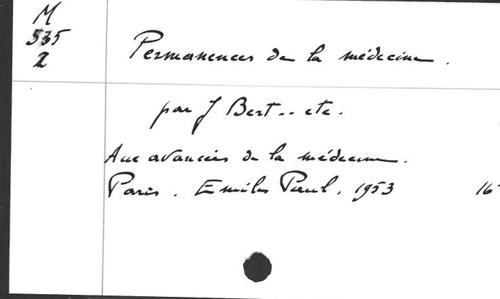 M
535
2
Permanences de la médecine.
par J Bert.. etc.
Aux avancées de la médecine.
Paris. Emile Paul. 1953 16